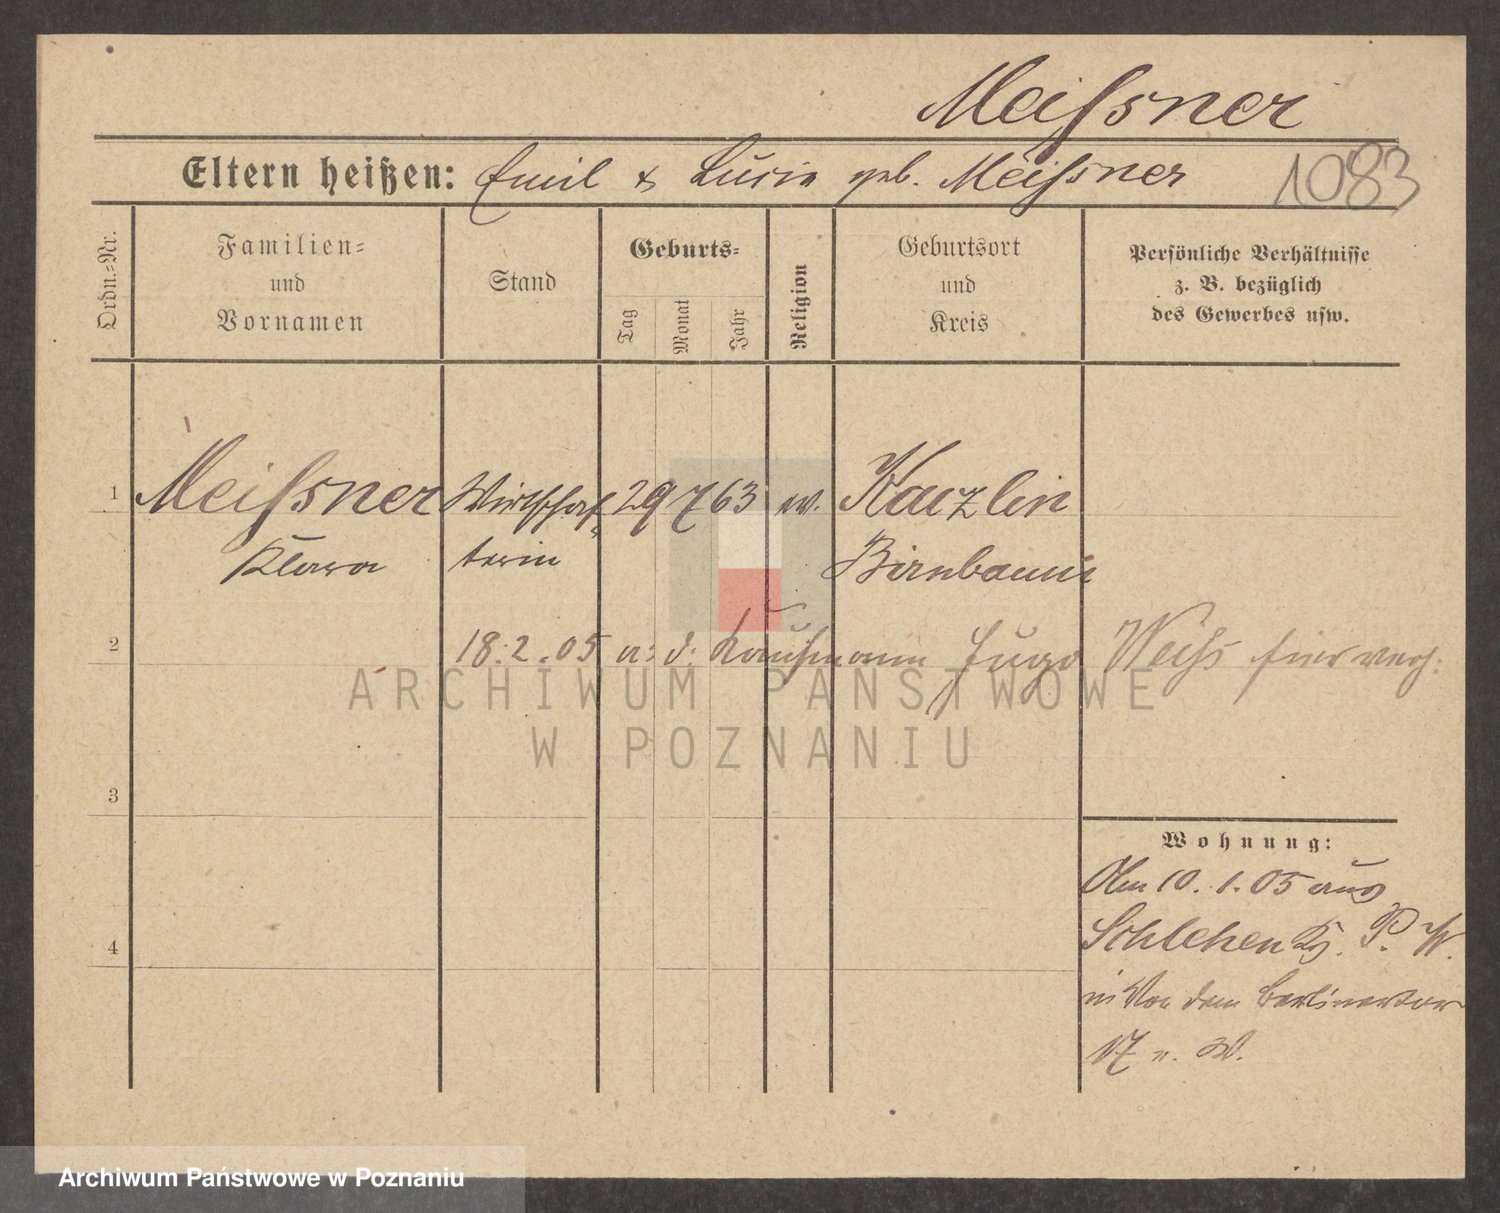 Meißner
Eltern heißen: Emil & Lucie geb. Meißner 1083
Ordn.-Nr.
Familien-
und
Vornamen
Stand
Geburts-
Tag
Monat
Jahr
Religion
Geburtsort
und
Kreis
Persönliche Verhältnisse
z. B. bezüglich
des Gewerbes usw.
1 Meißner Wirtschaf- 29 7 63 ev. Kaczlin
Klara terin Birnbaum
2 18.2.05 a: d: Kaufmann Hugo Weiß hier verh:
3
4
Wohnung:
Am 10.1.05 aus
Schlehen Kr. P. W.
in Vor dem Berlinertor
17 n. W.
ARCHIWUM PAŃSTWOWE
W POZNANIU
Archiwum Państwowe w Poznaniu